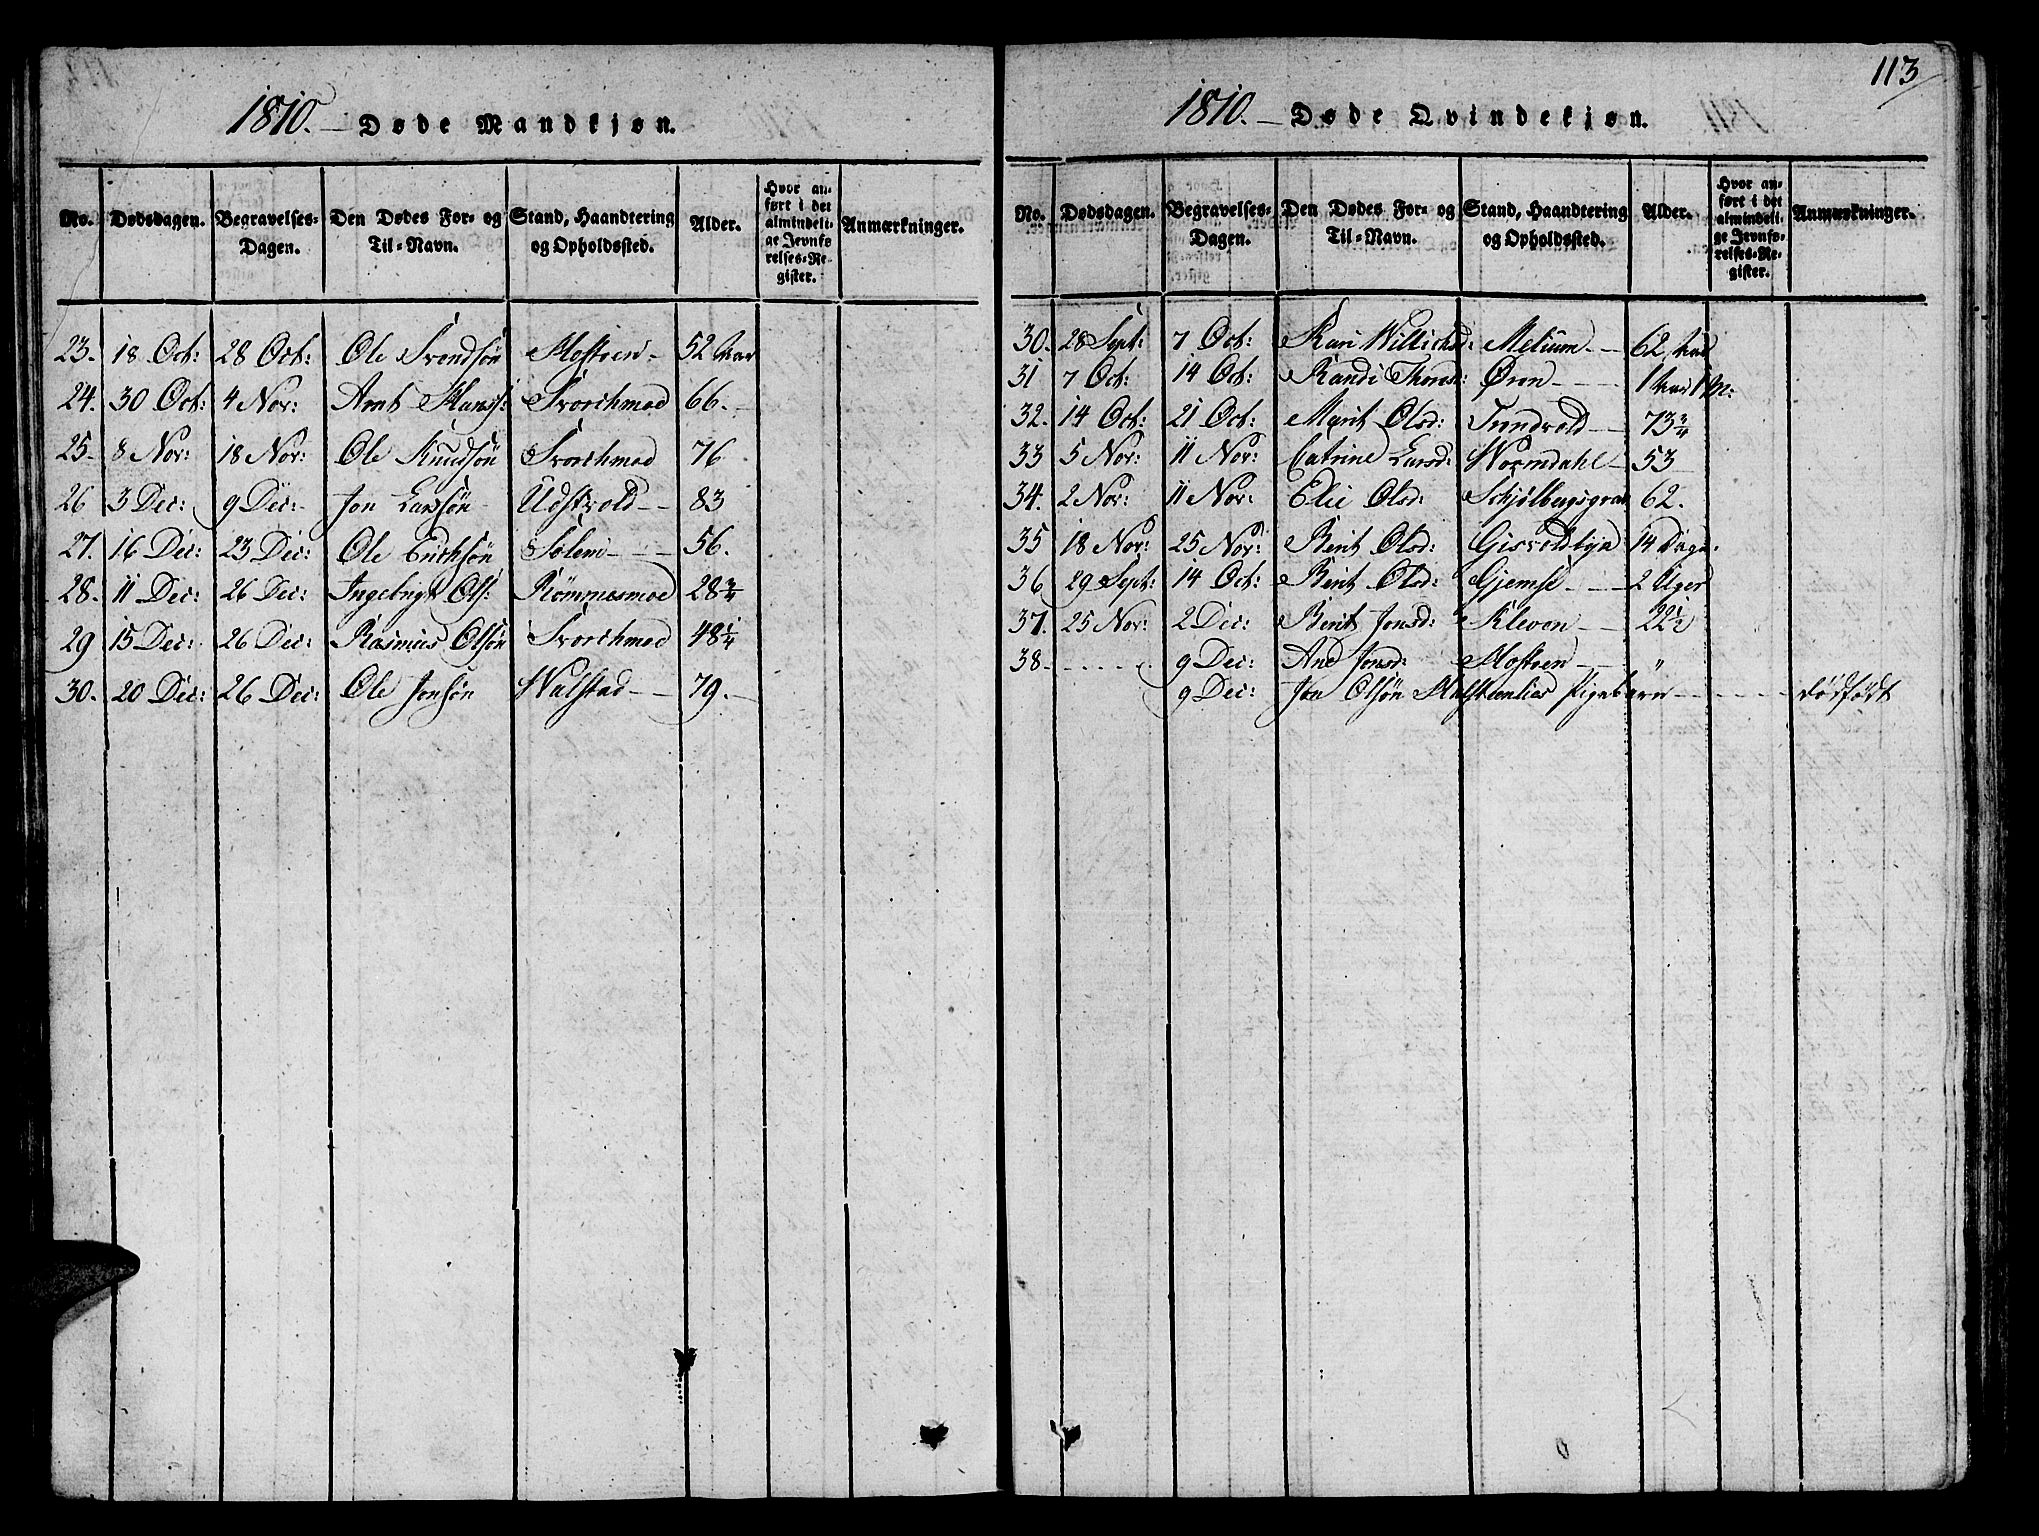 1810. — Døde Mandkjøn.
No. Dødsdagen. Begravelses-Dagen. Den Dødes For- og Til-Navn. Stand, Haandtering og Opholdssted. Alder. Hvor anført i det almindelige Jevnførelses-Register. Anmærkninger.
23. 18 Oct: 28 Oct: Ole Svendsøn Mostren — 52 Aar
24. 30 Oct: 4 Nor: Arnt Hans: Svorchmoe 66.
25. 8 Nor: 18 Nor: Ole Knudsøn Svorchmoe 76
26 3 Dec: 9 Dec: Jon Larssøn Udstvold — 83
27. 16 Dec: 23 Dec: Ole Erichsøn Solem — 56.
28. 11 Dec: 26 Dec: Ingebrigt Ols: Rømmesmoe 28 3/4
29 15 Dec: 26 Dec: Rasmus Olsøn Svorchmoe 48 1/4
30. 20 Dec: 26 Dec: Ole Jonsøn Walstad — 79. —
113
1810. — Døde Qvindekjøn.
No. Dødsdagen. Begravelses-Dagen. Den Dødes For- og Til-Navn. Stand, Haandtering og Opholdssted. Alder. Hvor anført i det almindelige Jevnførelses-Register. Anmærkninger.
30. 28 Sept: 7 Oct: Kari Willichsd: Melium — 62 Aar
31 7 Oct: 14 Oct: Randi Thoresd: Øren — 1 Aar 1 M:
32. 14 Oct: 21 Oct: Marit Olsd: Trondvold — 73 3/4
33 5 Nor: 11 Nor: Catrine Larsd: Wormdahl — 53
34. 2 Nor: 11 Nor: Elie Olsd: Schjølbergsgran 62.
35 18 Nor: 25 Nor: Berit Olsd: 14 Dage.
36 29 Sept: 14 Oct: Berit Olsd: Gjemse — 2 Uger
37. 25 Nor: 2 Dec: Berit Jonsd: Kleven — 22 1/2
38. - - - - 9 Dec: Ane Jonsd: Mostren — "
9 Dec: Jon Olsøn Pigebarn — dødfødt